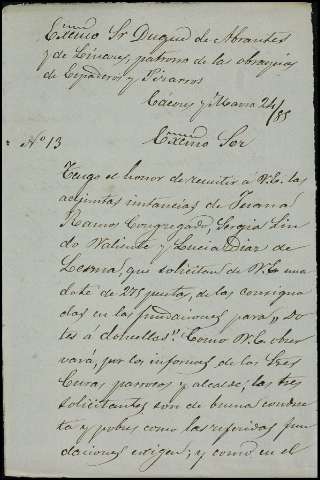 Exmo Sr Duque de Abrantes
y de Linares, patrono de las obras pias
de Espaderos y Pizarros
Cáceres y Marzo 24/85
No 13
Exmo Sor
Tengo el honor de remitir á V.E. las
adjuntas instancias de Juana
Ramos Congregado, Sergia Lin
do Valiente y Lucia Diaz de
Lesma, que solicitan de V.E. una
dote de 275 puntas, de las consigna
das en las fundaciones para "Do
tes á doncellas". Como V.E. obser
vará, por los informes de los Sres
Curas parrocos y alcalde, las tres
solicitantes son de buena conduc
ta y pobres como las referidas fun
daciones exigen; y como en el